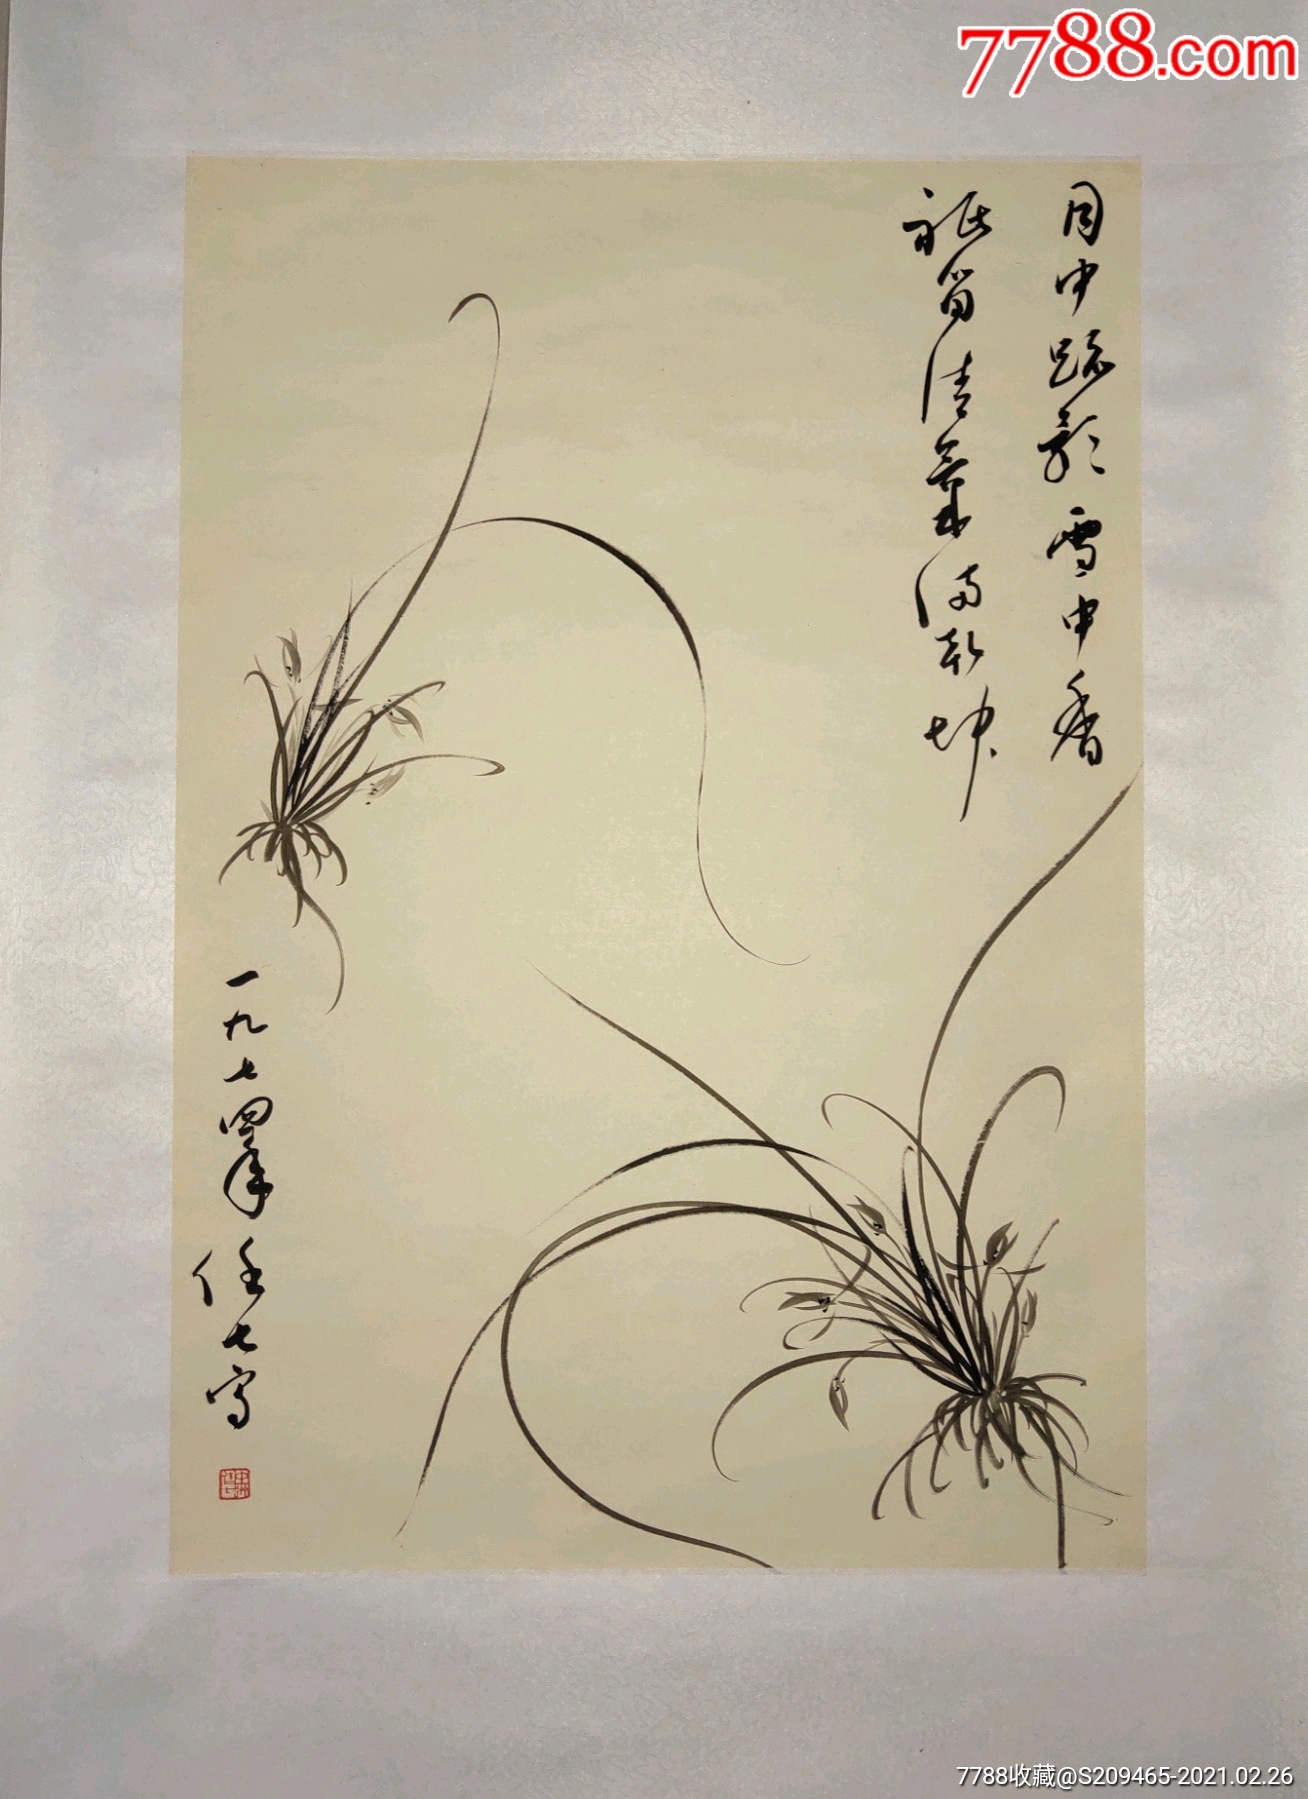 7788.com
月中疏影雪中香
祗留清氣滿乾坤
一九七四年任七写
7788收藏@S209465-2021.02.26